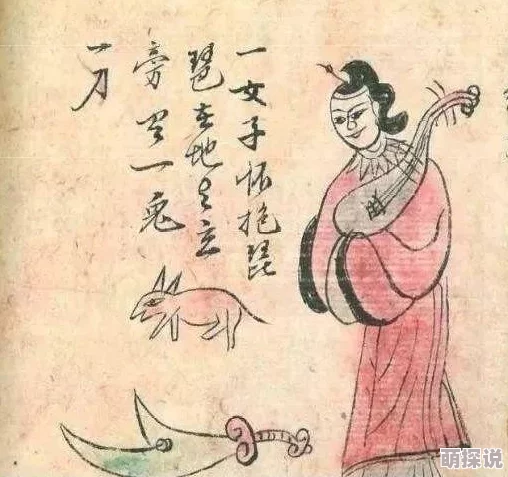 一女子怀抱琵
琶在地上立
旁一兔
一刀
萌探说